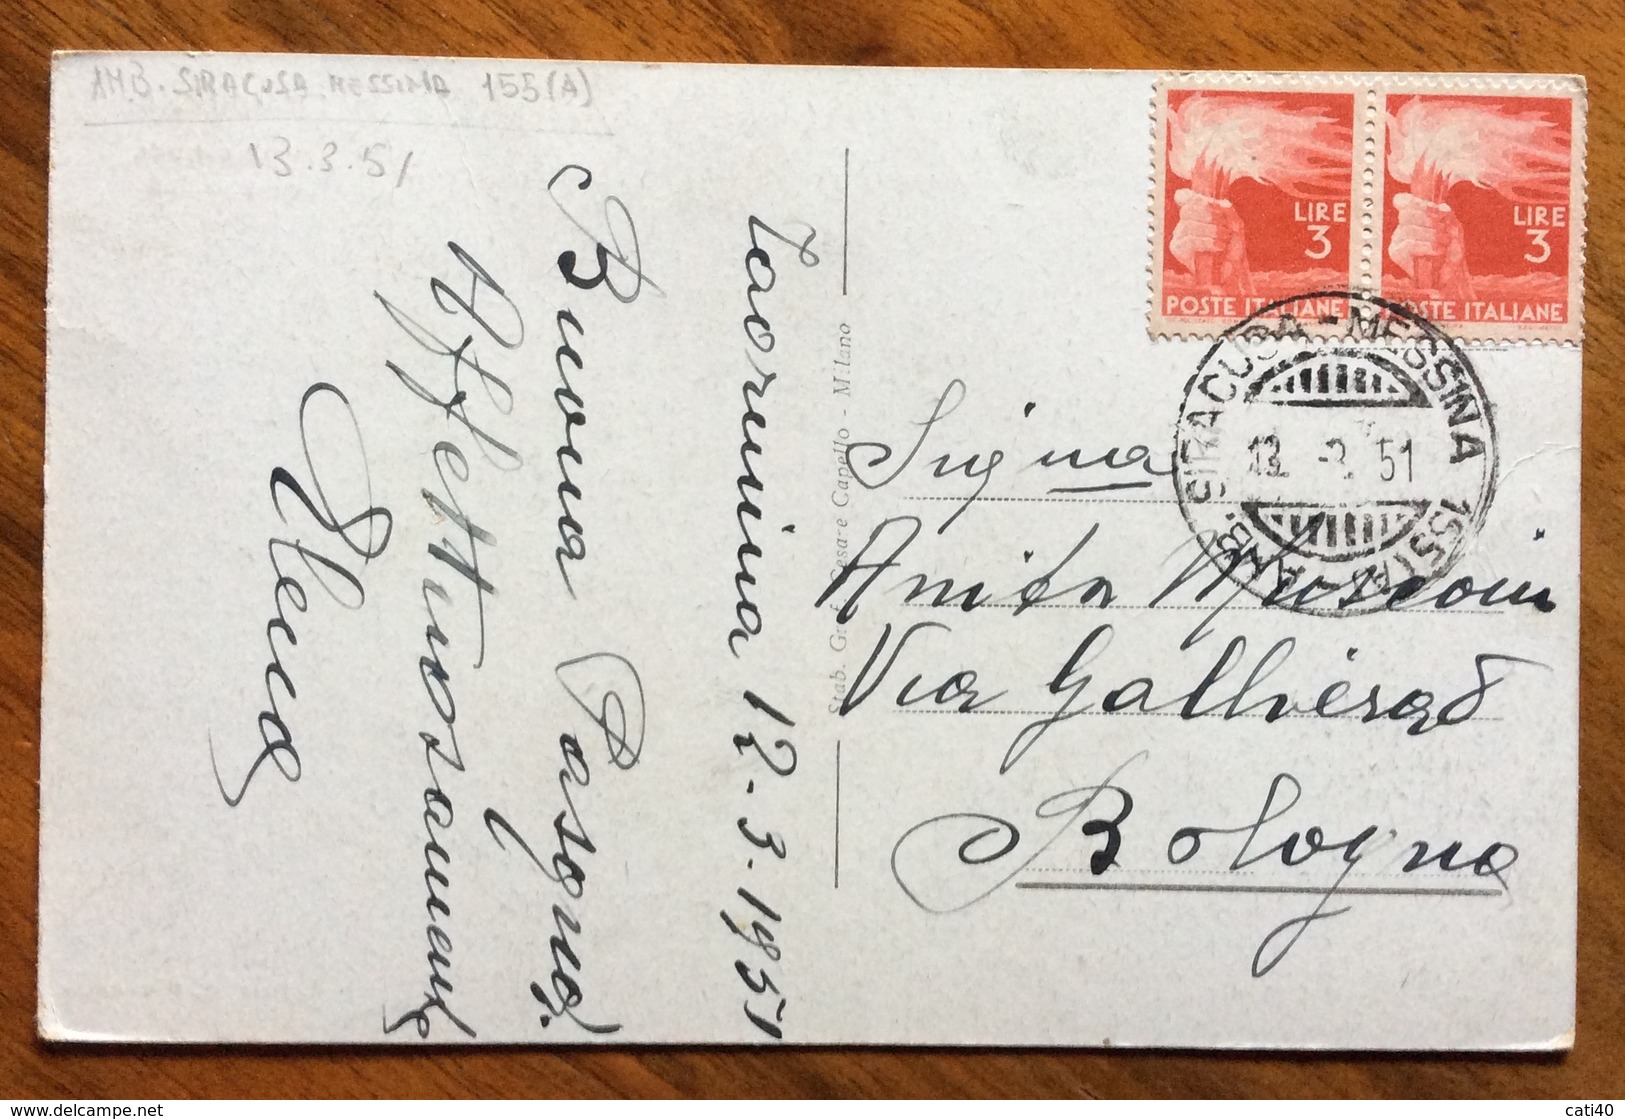 AMB. SIRACUSA MESSINA 155(A)
13.3.51
Taormina 12-3-1951
Buona Pasqua!
Affettuosamente
Elena
Stab. Graf. Cesare Capello - Milano
LIRE
3
POSTE ITALIANE
LIRE
3
POSTE ITALIANE
AMB. SIRACUSA - MESSINA 155 (A)
13. -3. 51
Sigina
Anita Musconi
Via
Bologna
delcampe.net
cati40